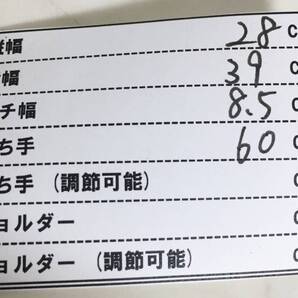 縦幅 28 c
幅 39 c
チ幅 8.5 c
ち手 60 c
ち手 (調節可能) c
ョルダー c
ョルダー (調節可能) c